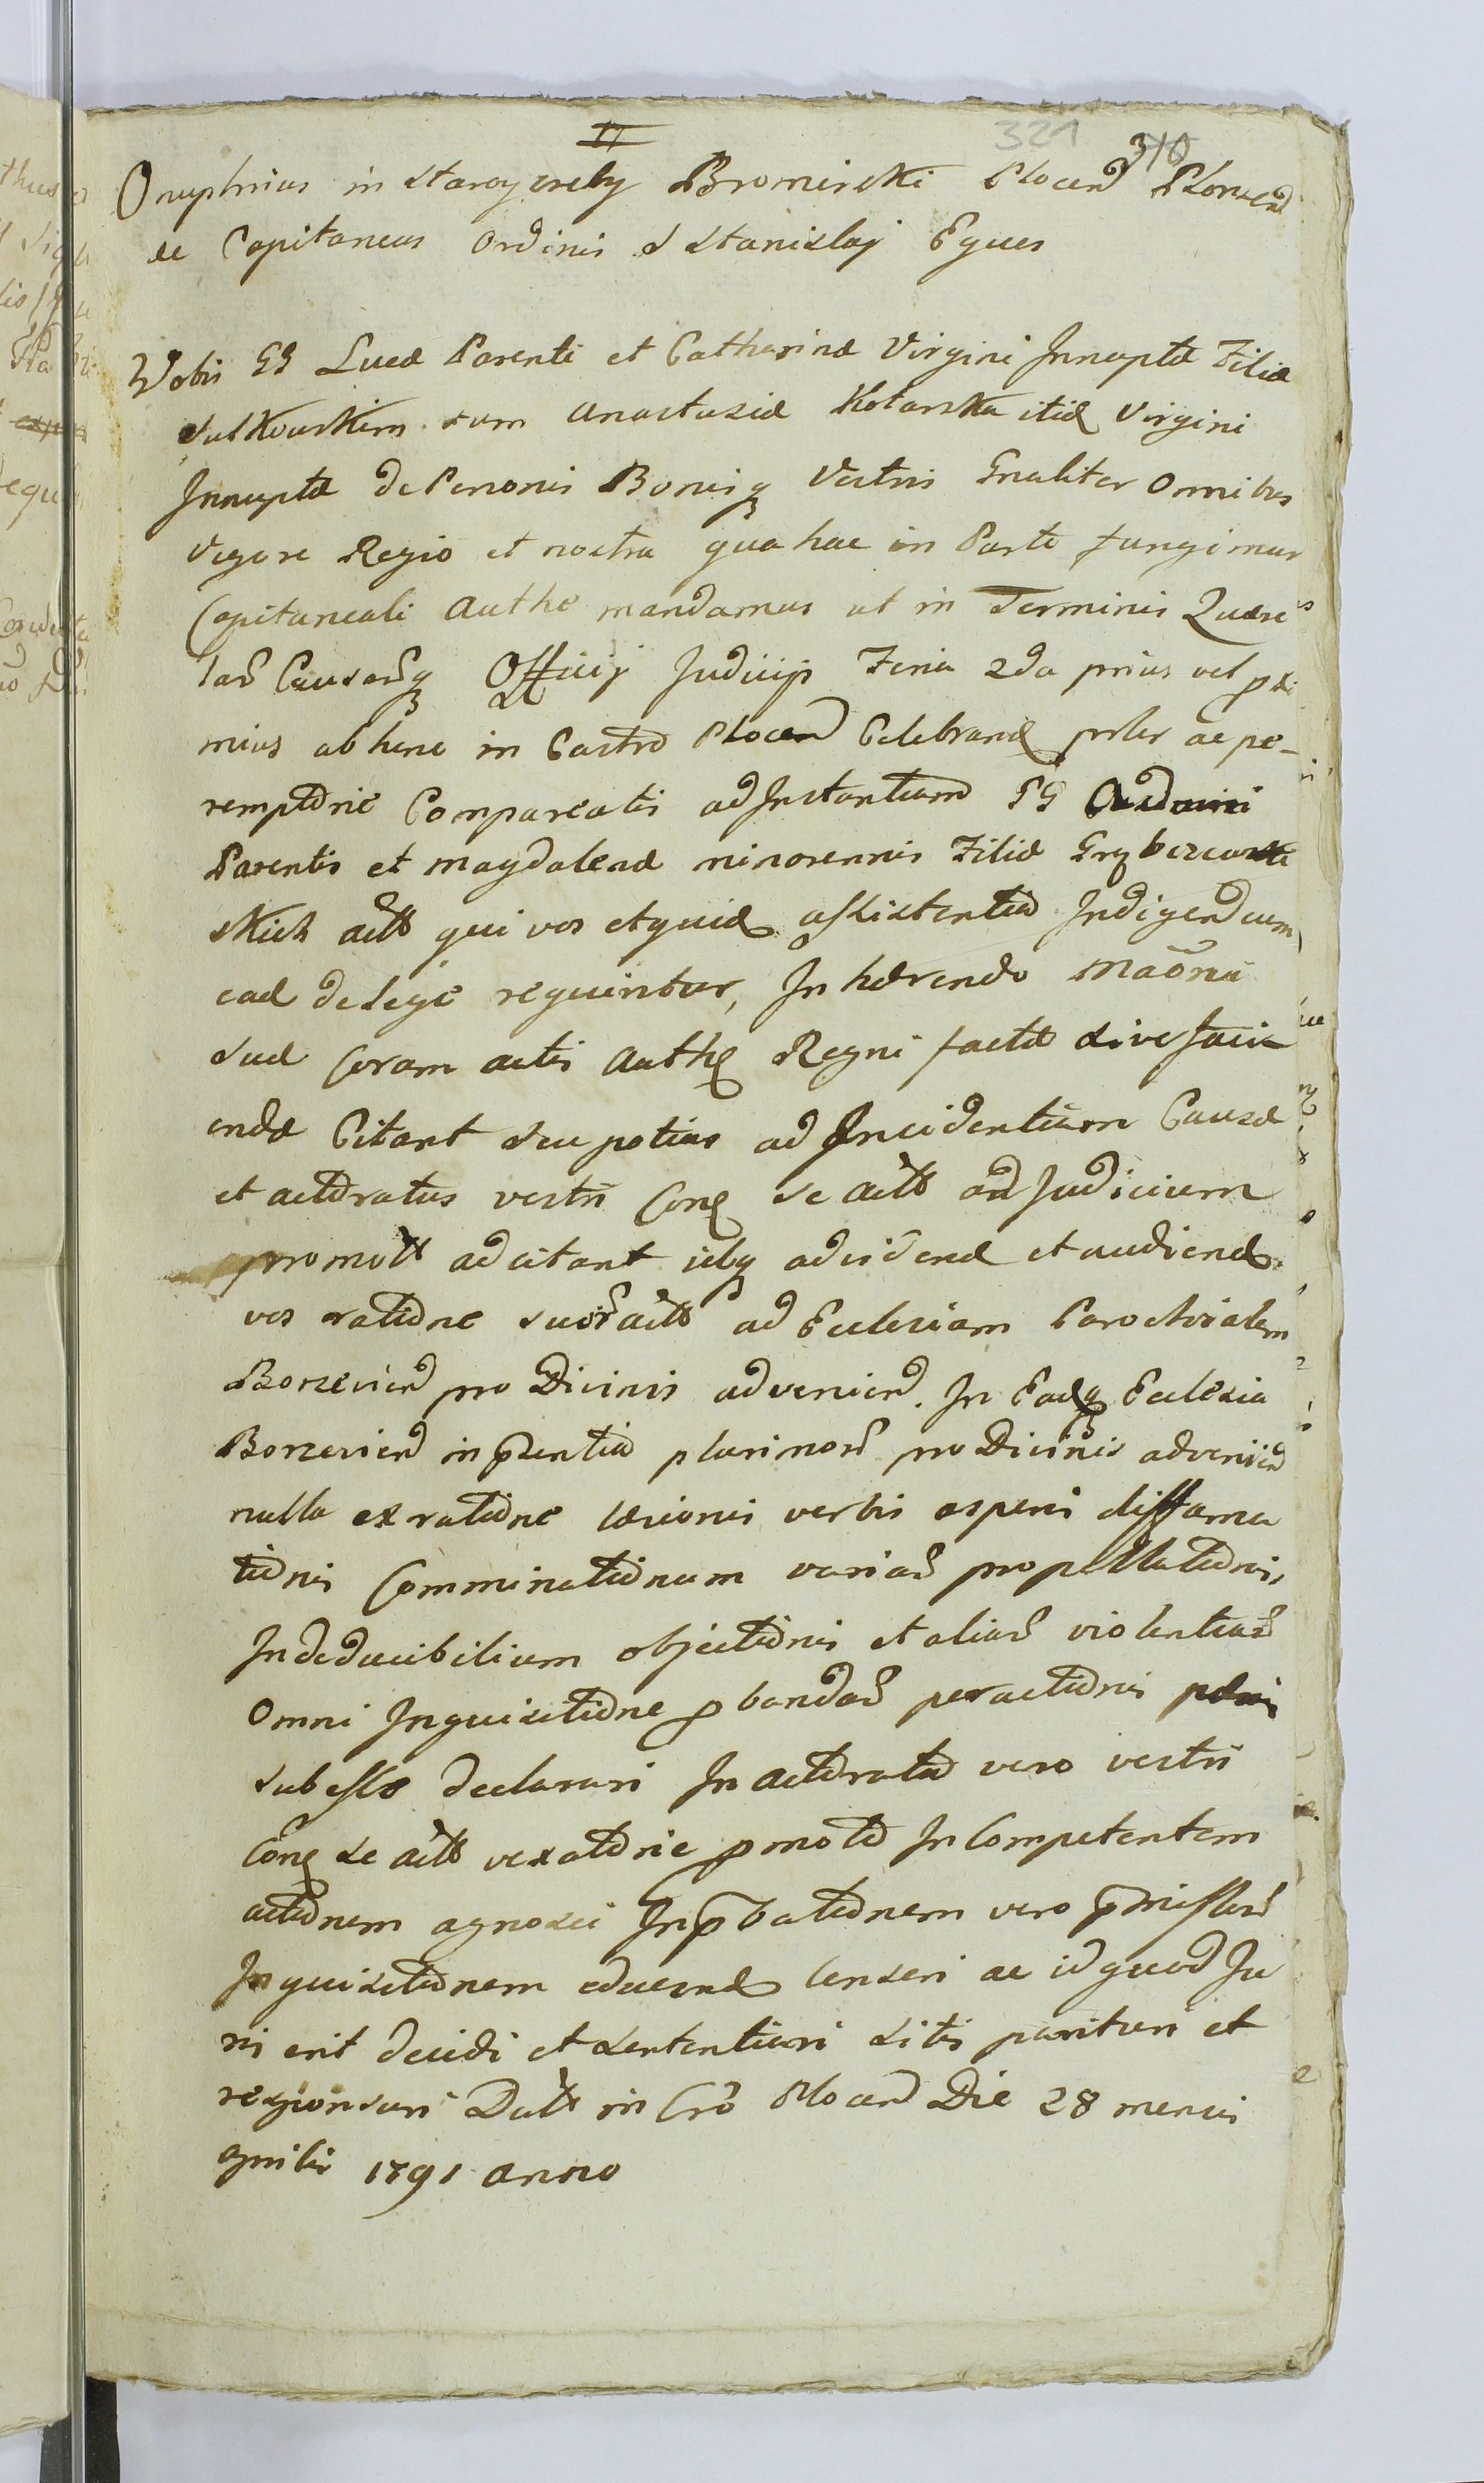 17
321
310
Onuphrius in Staroyreby Bromirski Plocen͠ Plonscen͠
ac Capitaneus Ordinis S Stanislaj Eques
Vobis GG Lucæ Parenti et Catharinæ Virgini Innuptæ Filiæ
Sutkowskim tum Anastasiæ Kolanska itid Virgini
Innuptæ de Personis Bonisq Vestris Gnaliter Omnibus
Vigore Regio et nostra qua hac in Parte fungimur
Capitaneali Authe mandamus ut in Terminis Quære
lar͠ Causar͠q Officij Judicij Feria 2da prius vel pxi
mius abhinc in Castro Plocen͠ Celebrand prler ac pe-
remptorie Compareatis ad Instantiam GG
Parentis et Magdalenæ minorennis Filiæ
skich actt qui vos etquid assistentia Indigen͠ cum
ead de Lege requiritur, In hærendo Mãoni
suæ Coram actis Auth Regni factæ sive faci
endæ Citant seu potius ad Incidentiam Causæ
et actoratus vestri Con se actt ad Judicium
promott adcitant idq ad vidend et audiend
vos ratione suor͠ actt ad Ecclesiam Parochialem
Borzevien͠ pro Divinis advenien͠. In Eadq Ecclesia
Borzevien͠ in pzentia plurimor͠ pro Divinis advenien͠
nulla ex ratione læsionis verbis asperis diffama
tionis Comminationum variar͠ propellationis,
Indeducibilium objectionis et aliar͠ violentiar͠
Omni Inquisitione pbandar͠ peractionis pænis
subesse declarari In actoratu vero vestri
Con se actt vexatorie pmoto Incompetentem
actionem agnosci In pbationem vero pmissor͠
Inquisitionem educend censeri ac id quod Ju
ris erit decidi et sententiari sitis parituri et
responsuri Datt in Cro Plocen͠ Die 28 mensis
Aprilis 1791 anno